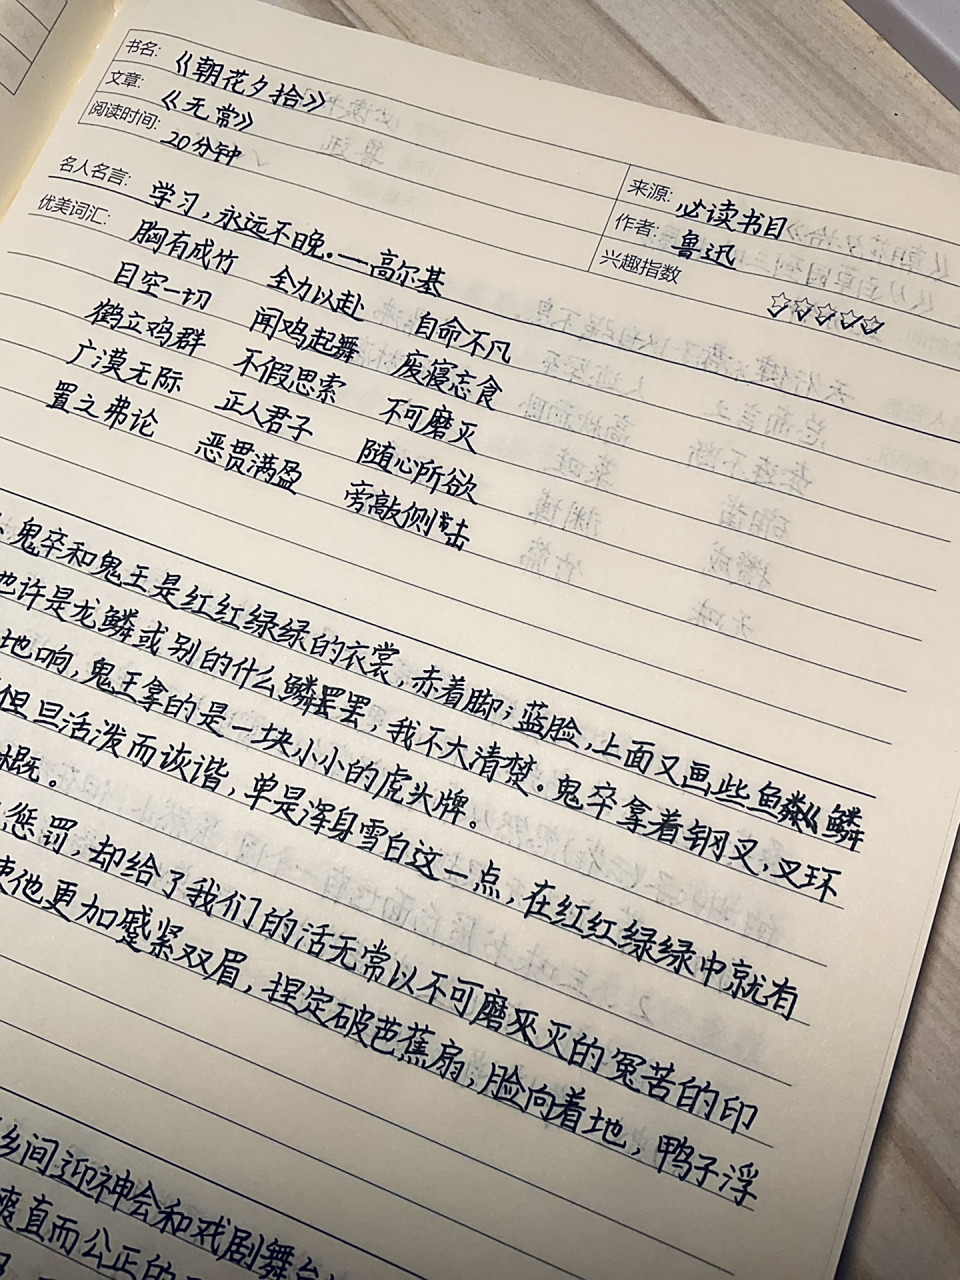 书名: 《朝花夕拾》
文章: 《无常》
阅读时间: 20分钟
来源: 必读书目
作者: 鲁迅
兴趣指数 ☆☆☆☆☆
名人名言: 学习,永远不晚.—高尔基
优美词汇: 胸有成竹 全力以赴 自命不凡
目空一切 闻鸡起舞 废寝忘食
鹤立鸡群 不假思索 不可磨灭
广漠无际 正人君子 随心所欲
置之弗论 恶贯满盈 旁敲侧击
鬼卒和鬼王是红红绿绿的衣裳,赤着脚;蓝脸,上面又画些鱼鳞
也许是龙鳞或别的什么鳞罢罢,我不大清楚。鬼卒拿着钢叉,叉环
地响,鬼王拿的是一块小小的虎头牌。
但且活泼而诙谐,单是浑身雪白这一点,在红红绿绿中就有
概。
惩罚,却给了我们的活无常以不可磨灭的冤苦的印
使他更加蹙紧双眉,捏定破芭蕉扇,脸向着地,鸭子浮
乡间迎神会和戏剧舞台
爽直而公正的